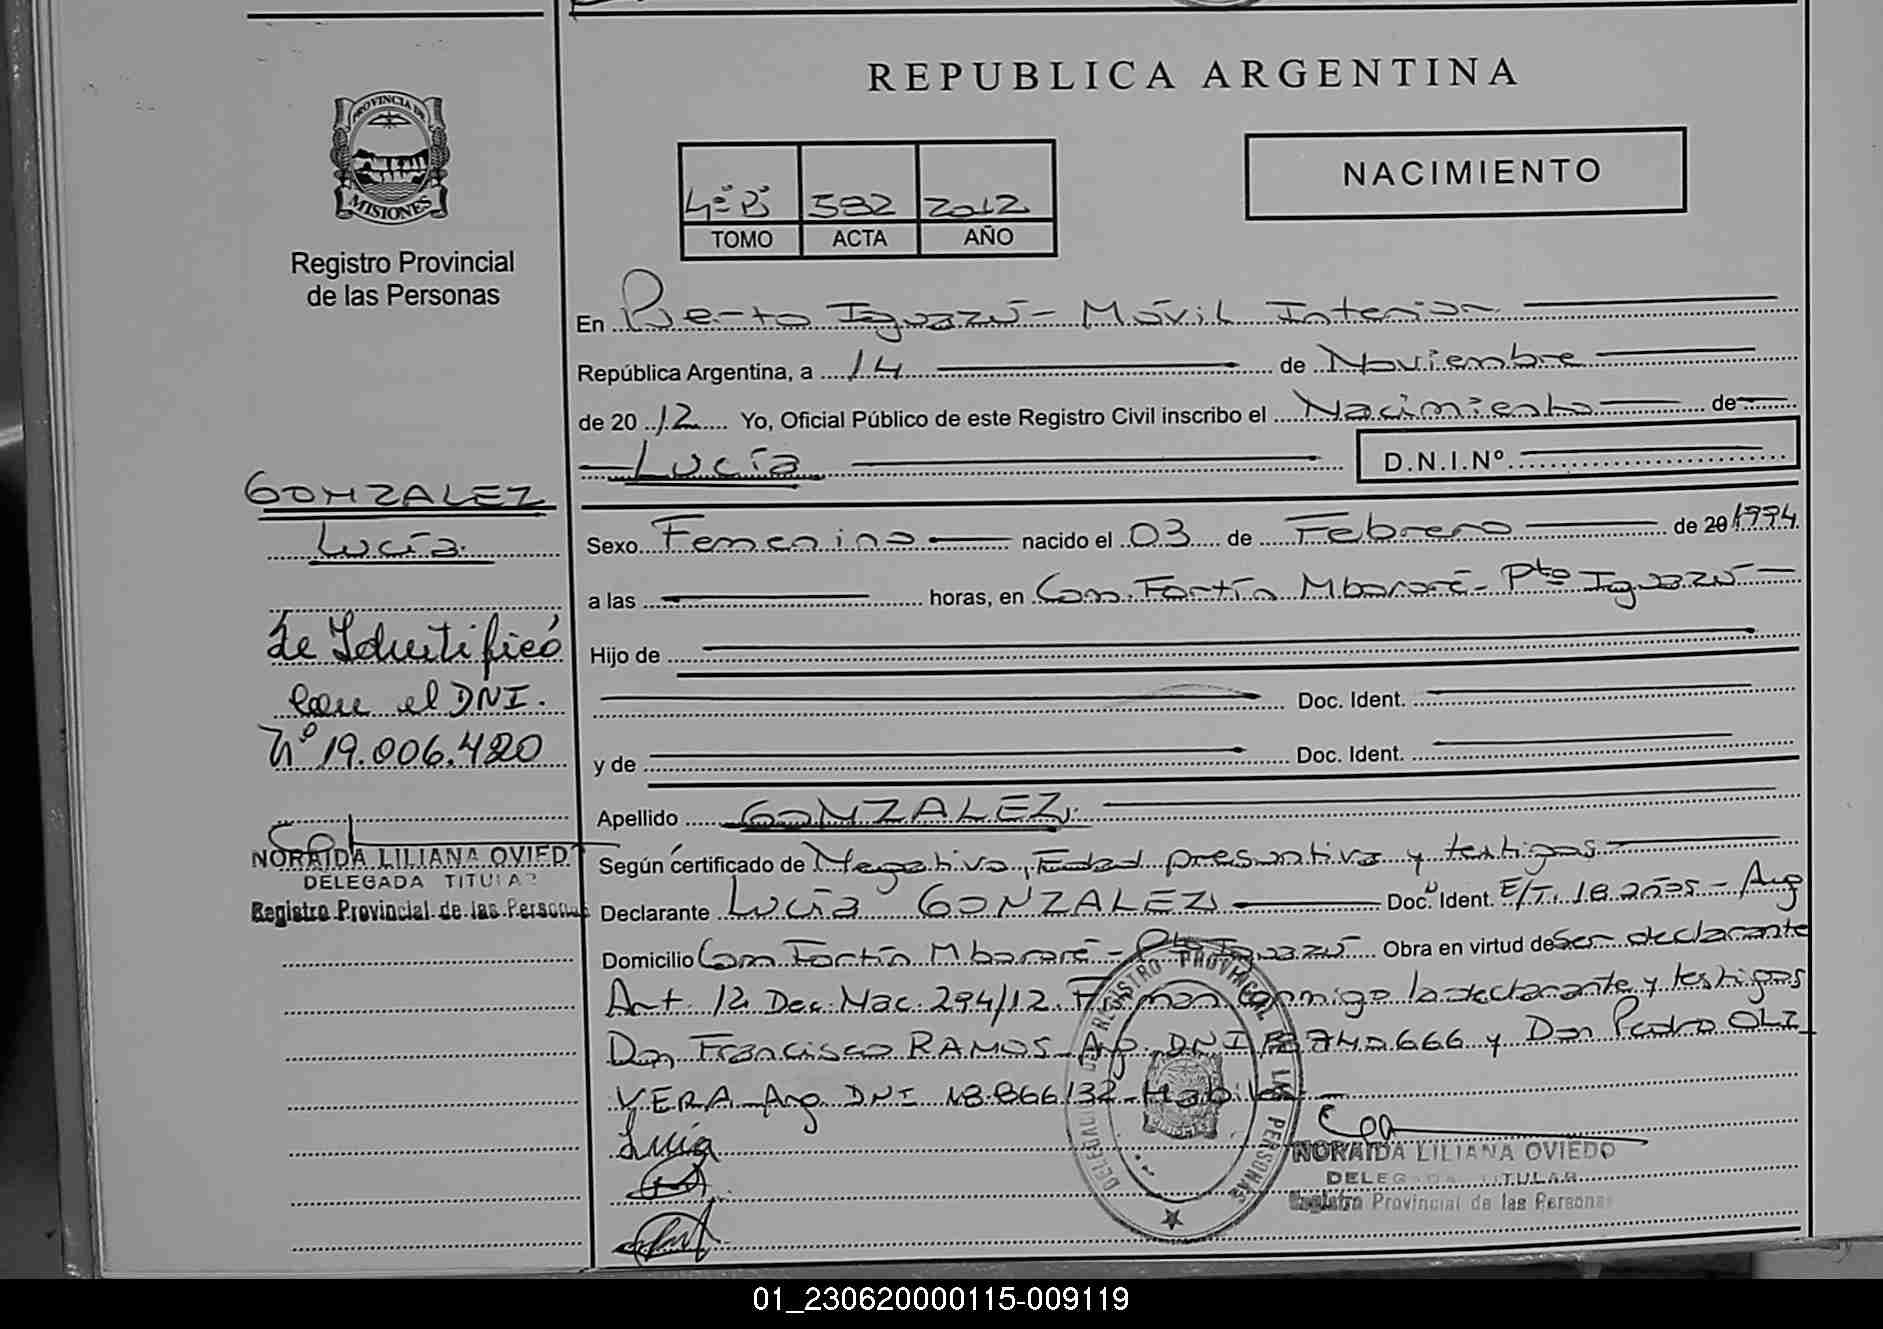 REPUBLICA ARGENTINA
PROVINCIA DE
MISIONES
Registro Provincial
de las Personas
NACIMIENTO
4º 2012
TOMO ACTA AÑO
En Puerto Iguazú - Móvil Interior
República Argentina, a 14 de Noviembre
de 20 12 Yo, Oficial Público de este Registro Civil inscribo el Nacimiento de
Lucía
D.N.I.Nº
GONZALEZ
Lucía
Se Identificó
con el DNI.
Nº 19.006.420
NORAIDA LILIANA OVIEDO
DELEGADA TITULAR
Registro Provincial de las Personas
Sexo Femenino nacido el 03 de Febrero de 20 1994
a las horas, en Com. Fortín Mbororé - Pto Iguazú
Hijo de
Doc. Ident.
y de Doc. Ident.
Apellido GONZALEZ
Según certificado de Negativo, Edad presuntiva y testigos
Declarante Lucía GONZALEZ Doc. Ident. E/T. 18 años - Arg
Domicilio Com Fortín Mbororé - Pto Iguazú Obra en virtud de Ser declarante
Art. 12 Dec. Nac. 294/12. Firman conmigo la declarante y testigos
Don Francisco RAMOS - Arg. DNI 666 y Don Pedro OLI
VERA - Arg DNI 18.866132 - Hábiles
Lucía
REGISTRO PROVINCIAL DE LAS PERSONAS
NORAIDA LILIANA OVIEDO
DELEGADA TITULAR
Registro Provincial de las Personas
01_230620000115-009119